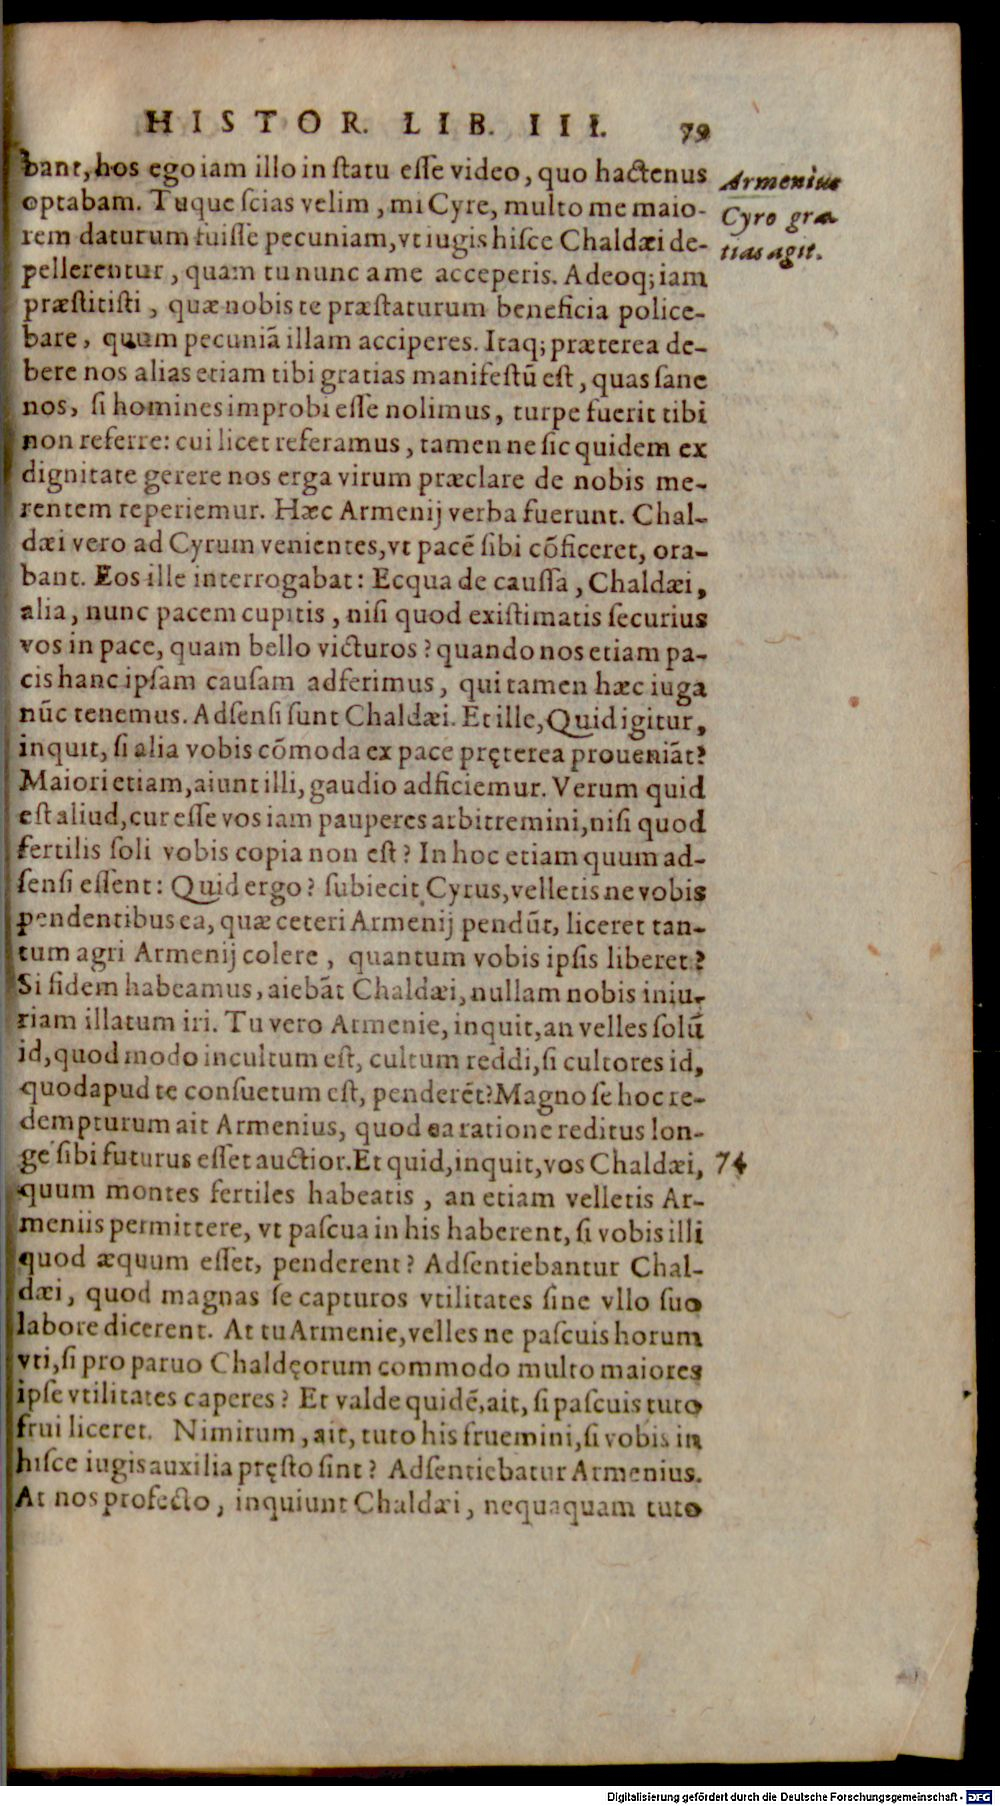 HISTOR. LIB. III. 79
bant, hos ego iam illo in ſtatu eſſe video, quo hactenus
Armenius
optabam. Tuque ſcias velim, mi Cyre, multo me maio-
Cyro gra
rem daturum fuiſſe pecuniam, vt iugis hiſce Chaldæi de-
tias agit.
pellerentur, quam tu nunc a me acceperis. Adeoq; iam
præſtitiſti, quæ nobis te præſtaturum beneficia police-
bare, quum pecuniã illam acciperes. Itaq; præterea de-
bere nos alias etiam tibi gratias manifeſtũ eſt, quas ſane
nos, ſi homines improbi eſſe nolimus, turpe fuerit tibi
non referre: cui licet referamus, tamen ne ſic quidem ex
dignitate gerere nos erga virum præclare de nobis me-
rentem reperiemur. Hæc Armenij verba fuerunt. Chal-
dæi vero ad Cyrum venientes, vt pacẽ ſibi cõficeret, ora-
bant. Eos ille interrogabat: Ecqua de cauſſa, Chaldæi,
alia, nunc pacem cupitis, niſi quod exiſtimatis ſecurius
vos in pace, quam bello victuros? quando nos etiam pa-
cis hanc ipſam cauſam adferimus, qui tamen hæc iuga
nũc tenemus. Adſenſi ſunt Chaldæi. Et ille, Quid igitur,
inquit, ſi alia vobis cõmoda ex pace pręterea proueniãt?
Maiori etiam, aiunt illi, gaudio adficiemur. Verum quid
eſt aliud, cur eſſe vos iam pauperes arbitremini, niſi quod
fertilis ſoli vobis copia non eſt? In hoc etiam quum ad-
ſenſi eſſent: Quid ergo? ſubiecit Cyrus, velletis ne vobis
pendentibus ea, quæ ceteri Armenij pendũt, liceret tan-
tum agri Armenij colere, quantum vobis ipſis liberet?
Si fidem habeamus, aiebãt Chaldæi, nullam nobis iniu-
riam illatum iri. Tu vero Armenie, inquit, an velles ſolũ
id, quod modo incultum eſt, cultum reddi, ſi cultores id,
quod apud te conſuetum eſt, penderẽt? Magno ſe hoc re-
dempturum ait Armenius, quod ea ratione reditus lon-
ge ſibi futurus eſſet auctior. Et quid, inquit, vos Chaldæi, 74
quum montes fertiles habeatis, an etiam velletis Ar-
meniis permittere, vt paſcua in his haberent, ſi vobis illi
quod æquum eſſet, penderent? Adſentiebantur Chal-
dæi, quod magnas ſe capturos vtilitates ſine vllo ſuo
labore dicerent. At tu Armenie, velles ne paſcuis horum
vti, ſi pro paruo Chaldęorum commodo multo maiores
ipſe vtilitates caperes? Et valde quidẽ, ait, ſi paſcuis tuto
frui liceret. Nimirum, ait, tuto his fruemini, ſi vobis in
hiſce iugis auxilia pręſto ſint? Adſentiebatur Armenius.
At nos profecto, inquiunt Chaldæi, nequaquam tuto
Digitalisierung gefördert durch die Deutsche Forschungsgemeinschaft - DFG